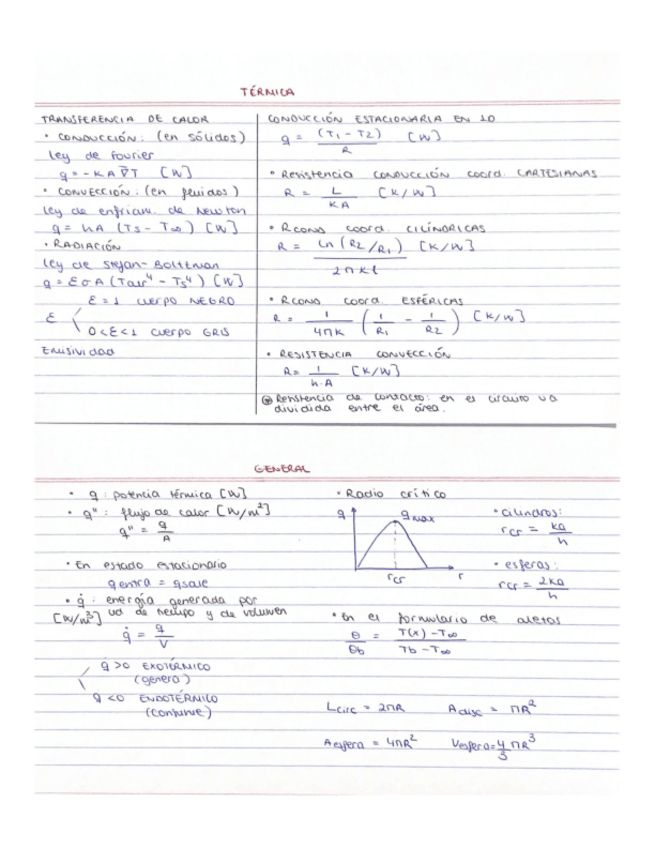 TÉRMICA
TRANSFERENCIA DE CALOR
• CONDUCCIÓN: (en sólidos)
Ley de Fourier
q = -KA∇T [W]
• CONVECCIÓN: (en fluidos)
Ley de enfriam. de Newton
q = hA (Ts - T∞) [W]
• RADIACIÓN
Ley de Stefan-Boltzman
q = εσA (Talr⁴ - Ts⁴) [W]
ε = 1 CUERPO NEGRO
ε
0<ε<1 CUERPO GRIS
EMISIVIDAD
CONDUCCIÓN ESTACIONARIA EN 1D
q = (T1 - T2) / R [W]
• Resistencia CONDUCCIÓN coord. CARTESIANAS
R = L / KA [K/W]
• RCOND coord. CILÍNDRICAS
R = Ln (R2/R1) / 2πKL [K/W]
• RCOND coord. ESFÉRICAS
R = 1 / 4πK (1/R1 - 1/R2) [K/W]
• RESISTENCIA CONVECCIÓN
R = 1 / h·A [K/W]
Resistencia de contacto: en el circuito va
dividida entre el área.
GENERAL
• q: potencia térmica [W]
• q'': flujo de calor [W/m²]
q'' = q / A
• En estado estacionario
q entra = q sale
• q̇: energía generada por
[W/m³] ud de tiempo y de volumen
q̇ = q / V
q̇ >0 EXOTÉRMICO
(genera)
q <0 ENDOTÉRMICO
(consume)
• Radio crítico
q
qmax
rcr
r
• cilindros:
rcr = ka / h
• esferas:
rcr = 2ka / h
• En el formulario de aletas
θ / θb = T(x) - T∞ / Tb - T∞
Lcirc = 2πR
Adisc = πR²
Aesfera = 4πR²
Vesfera = 4/3 πR³